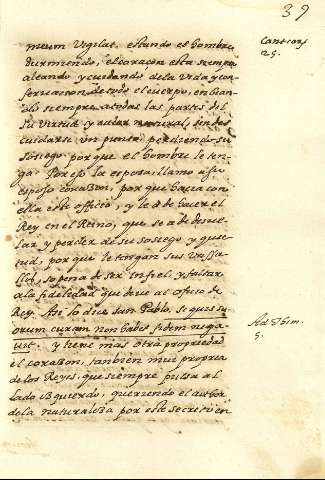 39
meum Vigilat, estando el hombre
Cant. cap.
25.
durmiendo, el coraçon esta siempre
aleando y cuidando de la vida y con-
servacion de todo el cuerpo, embian-
dolo siempre a todas las partes del
su virtud y calor natural, sin des
cuidarse un punto perdiendo su
sosiego porque el hombre le ten-
ga. Por eso la esposa llamo a su
esposo coraBon, porque hacia con
ella este officio, y le a de hacer el
Rey en el Reino, que se a de desve-
lar y perder de su sosiego y quie-
tud, por que le tengan sus Vassa-
llos, so pena de ser infiel, y faltar
a la fidelidad que deve al oficio de
Rey. Asi lo dice san Pablo, se quis su
Ad Thim.
5.
orum curam non habet fidem nega-
uit. y tiene mas otra propriedad
el coraBon, tambien mui propria
de los Reyes, que siempre pulsa al
lado iBquierdo, queriendo el author
de la naturaleBa por este secreto en